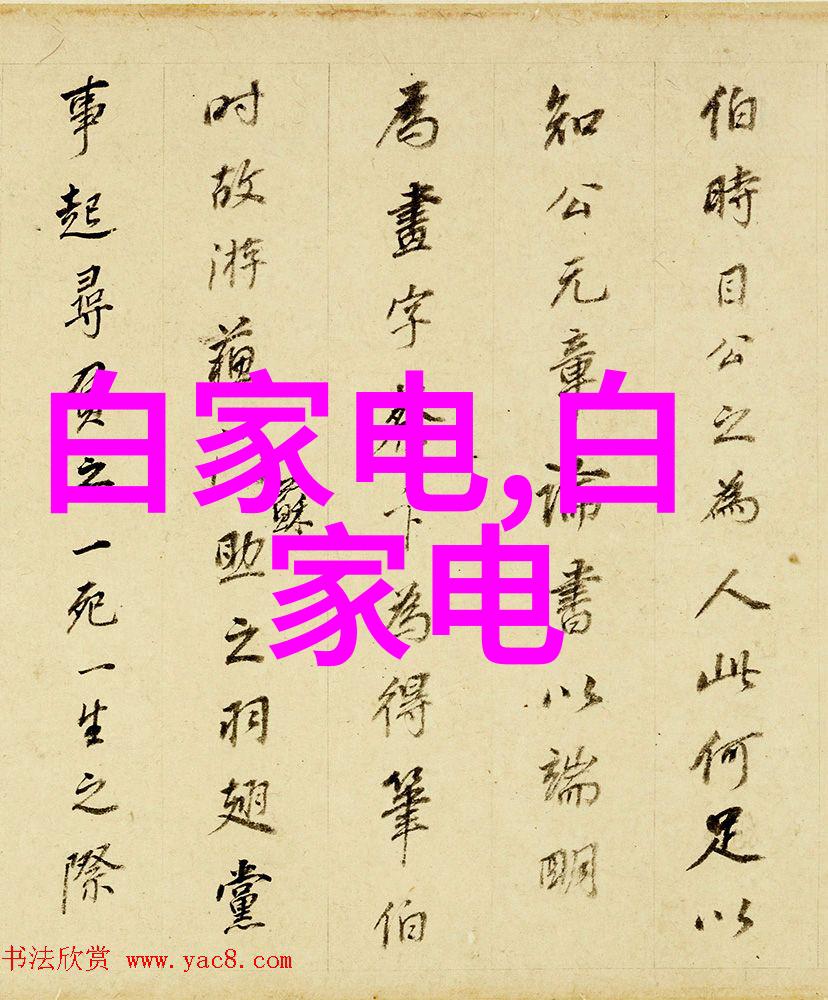 伯時目公之為人此何足以
知公元章論書以端明
為畫字蔡卞為得筆伯
时故游蘓助之羽翅黨
蘇
事起尋負之一死一生之際
白家电,白
家电
书法欣赏 www.yac8.com